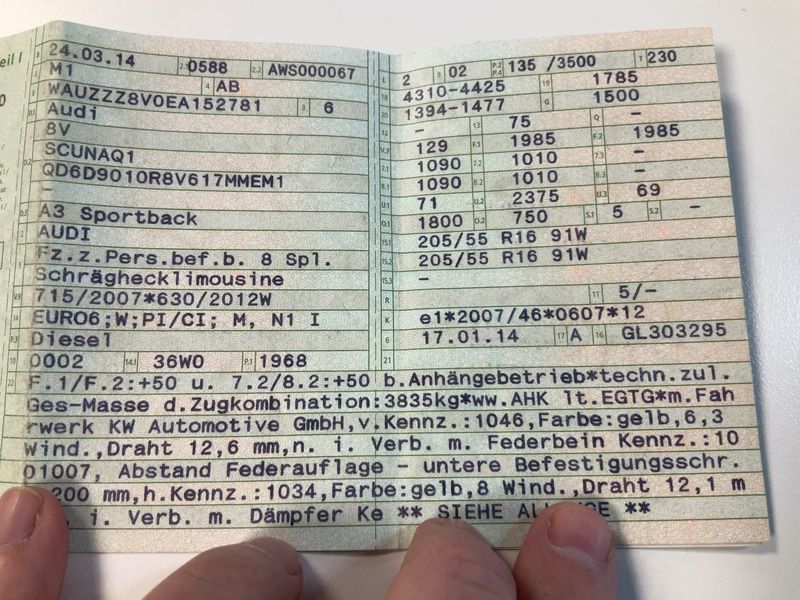 24.03.14 2.1 0588 2.2 AWS000067
M1 4 AB
WAUZZZ8V0EA152781 3 6
Audi
8V
SCUNAQ1
QD6D9010R8V617MMEM1
–
A3 Sportback
AUDI
Fz.z.Pers.bef.b. 8 Spl.
Schräghecklimousine
715/2007*630/2012W
EURO6;W;PI/CI; M, N1 I
Diesel
0002 14.1 36W0 P.1 1968
L 2 9 02 P.2 P.4 135 /3500 T 230
18 4310-4425 19 1785
20 1394-1477 G 1500
12 – 13 75 Q –
V.7 129 F.1 1985 F.2 1985
7.1 1090 7.2 1010 7.3 –
8.1 1090 8.2 1010 8.3 –
U.1 71 U.2 2375 U.3 69
O.1 1800 O.2 750 S.1 5 S.2 –
15.1 205/55 R16 91W
15.2 205/55 R16 91W
15.3 –
R 11 5/–
K e1*2007/46*0607*12
6 17.01.14 17 A 16 GL303295
21
22 F.1/F.2:+50 u. 7.2/8.2:+50 b.Anhängebetrieb*techn.zul.
Ges-Masse d.Zugkombination:3835kg*ww.AHK lt.EGTG*m.Fah
rwerk KW Automotive GmbH,v.Kennz.:1046,Farbe:gelb,6,3
Wind.,Draht 12,6 mm,n. i. Verb. m. Federbein Kennz.:10
01007, Abstand Federauflage – untere Befestigungsschr.
200 mm,h.Kennz.:1034,Farbe:gelb,8 Wind.,Draht 12,1 m
i. Verb. m. Dämpfer Ke ** SIEHE **